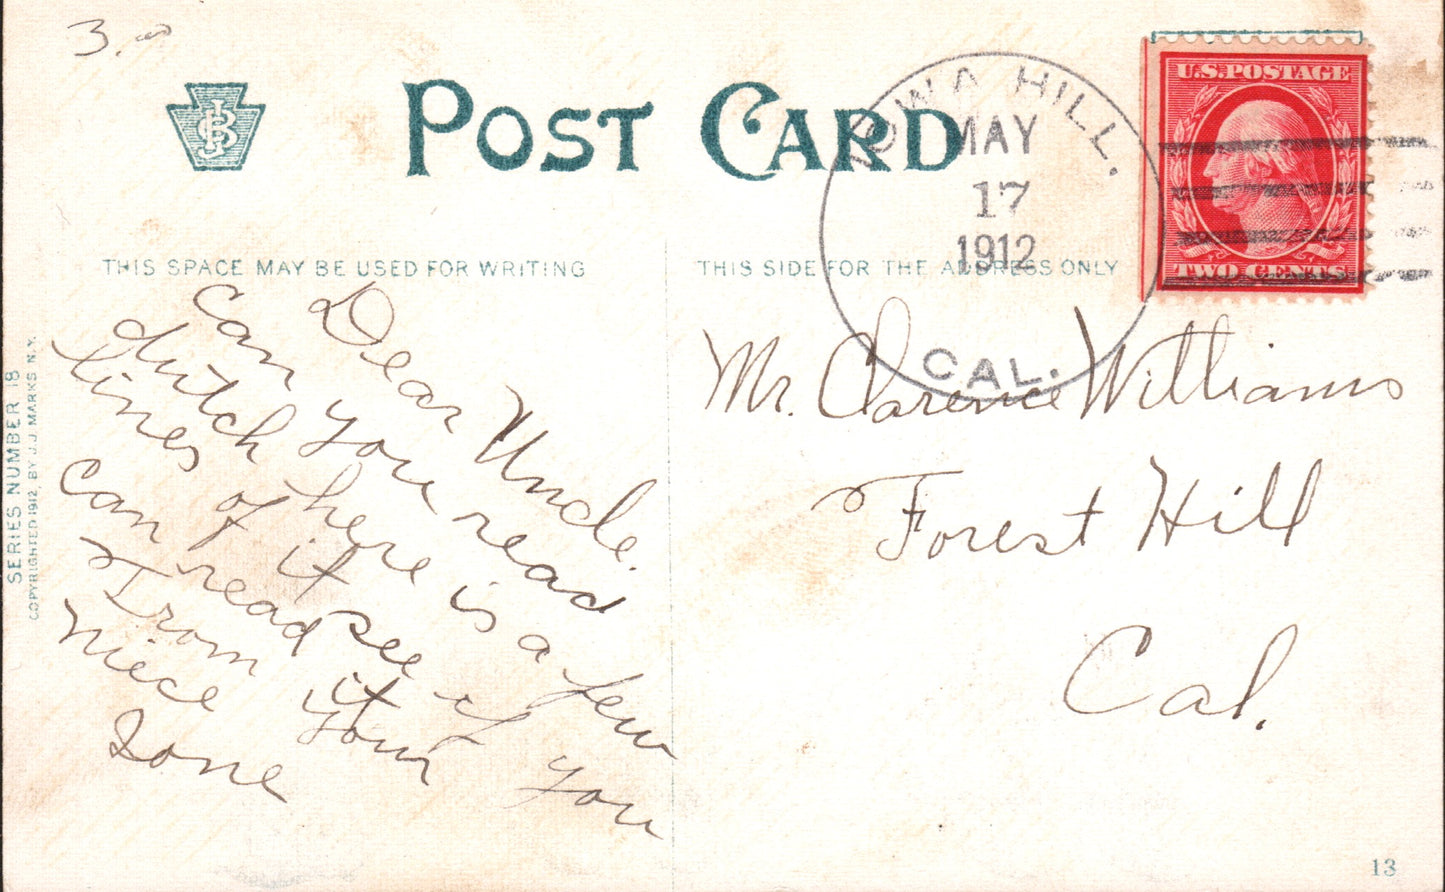 3.00
JSB
POST CARD
IOWA HILL.
MAY
17
1912
CAL.
U.S. POSTAGE
TWO CENTS
THIS SPACE MAY BE USED FOR WRITING
THIS SIDE FOR THE ADDRESS ONLY
Dear Uncle
Can you read
dutch here is a few
lines of it see if you
can read it
From your
niece
Ione
Mr. Clarence Williams
Forest Hill
Cal.
SERIES NUMBER 18
COPYRIGHTED 1912, BY J.J. MARKS N.Y.
13